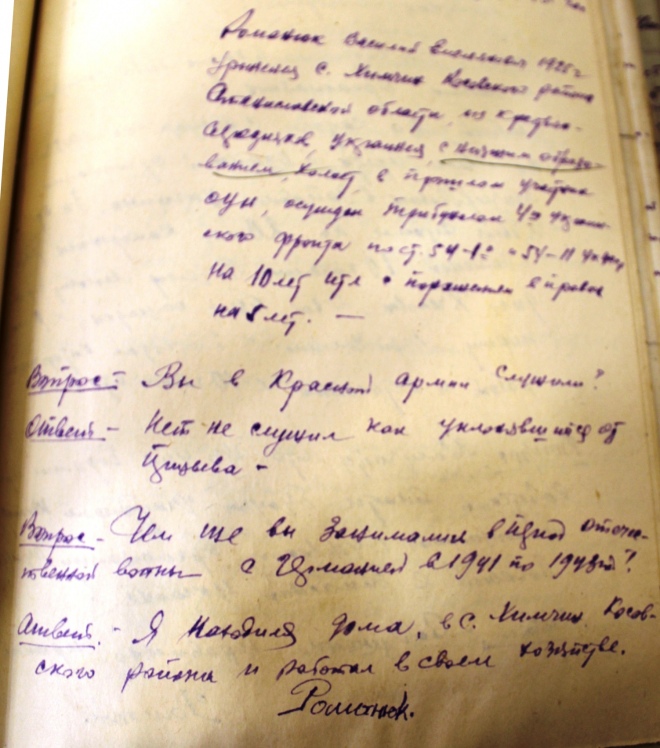 Романюк Василий Емельянович, 1925 г
уроженец с. Химчин Косовского района
Станиславской области, из крестьян-
середняков, украинец, с низшим образо-
ванием, холост, в прошлом участник
ОУН, осужден трибуналом 4го украин-
ского фронта по ст. 54-1а и 54-11 УК УССР
на 10 лет ИТЛ с поражением в правах
на 5 лет. —
Вопрос: Вы в Красной армии служили?
Ответ - Нет не служил как уклонявшийся от
призыва -
Вопрос - Чем же вы занимались в период отече-
ственной войны с Германией с 1941 по 1943 год?
Ответ. - Я находился дома, в с. Химчин Косов-
ского района и работал в своем хозяйстве.
Романюк.